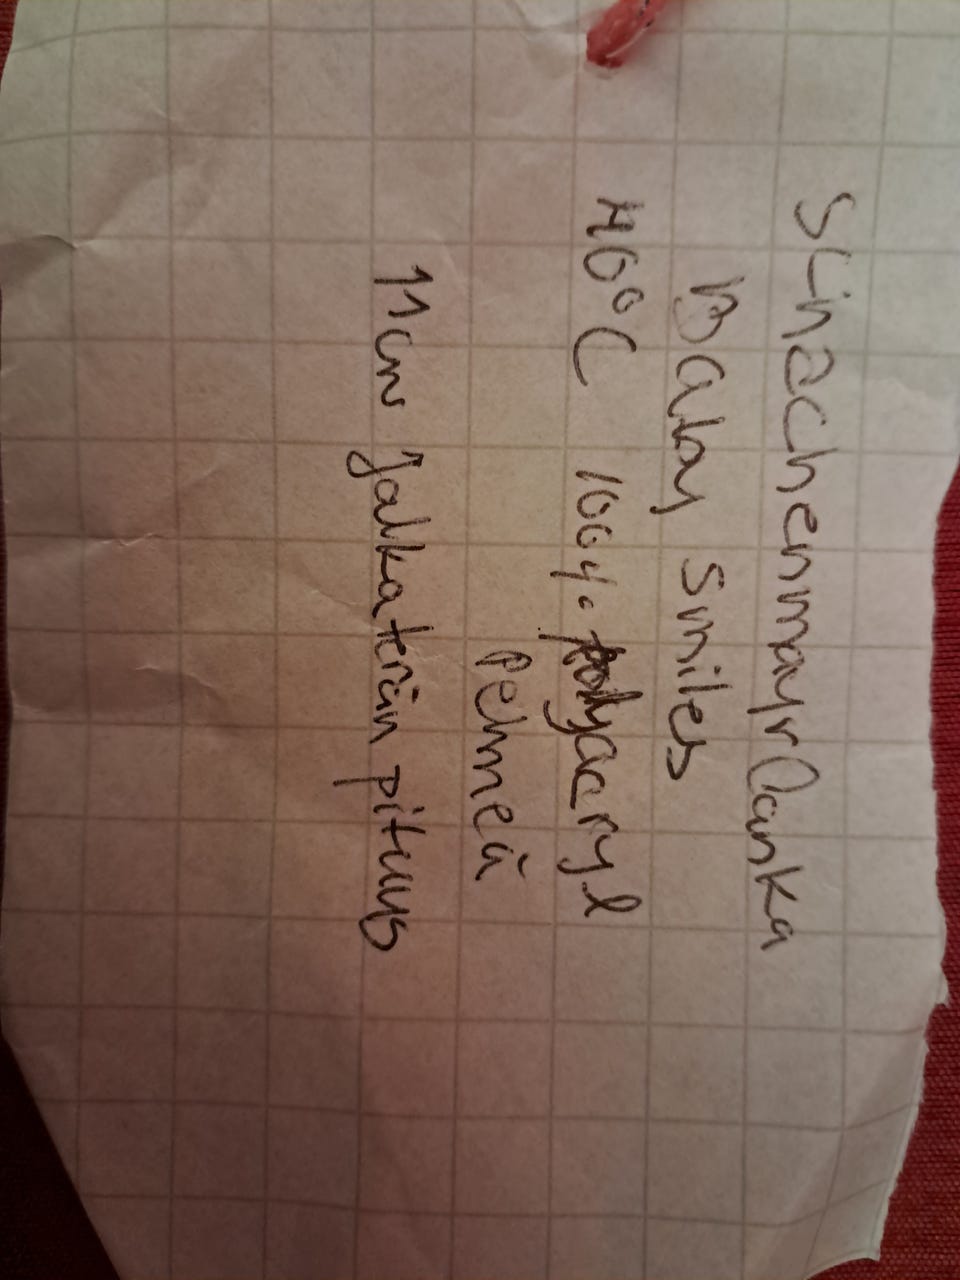 SchzachenmayrLanka
Baby Smiles
40°C 100% polyacryl
Pehmeä
11cm Jalkaterän pituus